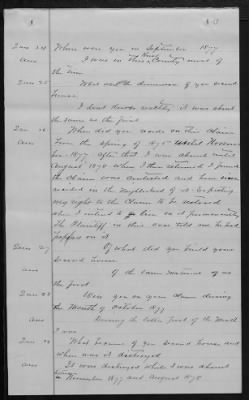 Ques 24 When were you in September 1877
Ans I was in this County most of
the time
Ques 25 What was the dimensions of your second
house
I dont know exactly it was about
the same as the first
Ques 26 When did you reside on this Claim
Ans From the spring of 1875 until Novem
ber 1877 After that I was absent until
August 1878 when I then returned I found
the Claim was contested and have since
resided in the neighborhood of it expecting
my right to the Claim to be restored
when I intend to live on it permanently
The Plaintiff in this case told me he had
jumped it
Ques 27 Of what did you build your
second house
Ans Of the same material as
the first
Ques 28 Were you on your claim during
the Month of October 1877
Ans During the latter part of the Month
I was
Ques 29 What became of your second house and
when was it destroyed
Ans It was destroyed while I was absent
between November 1877 and August 1878